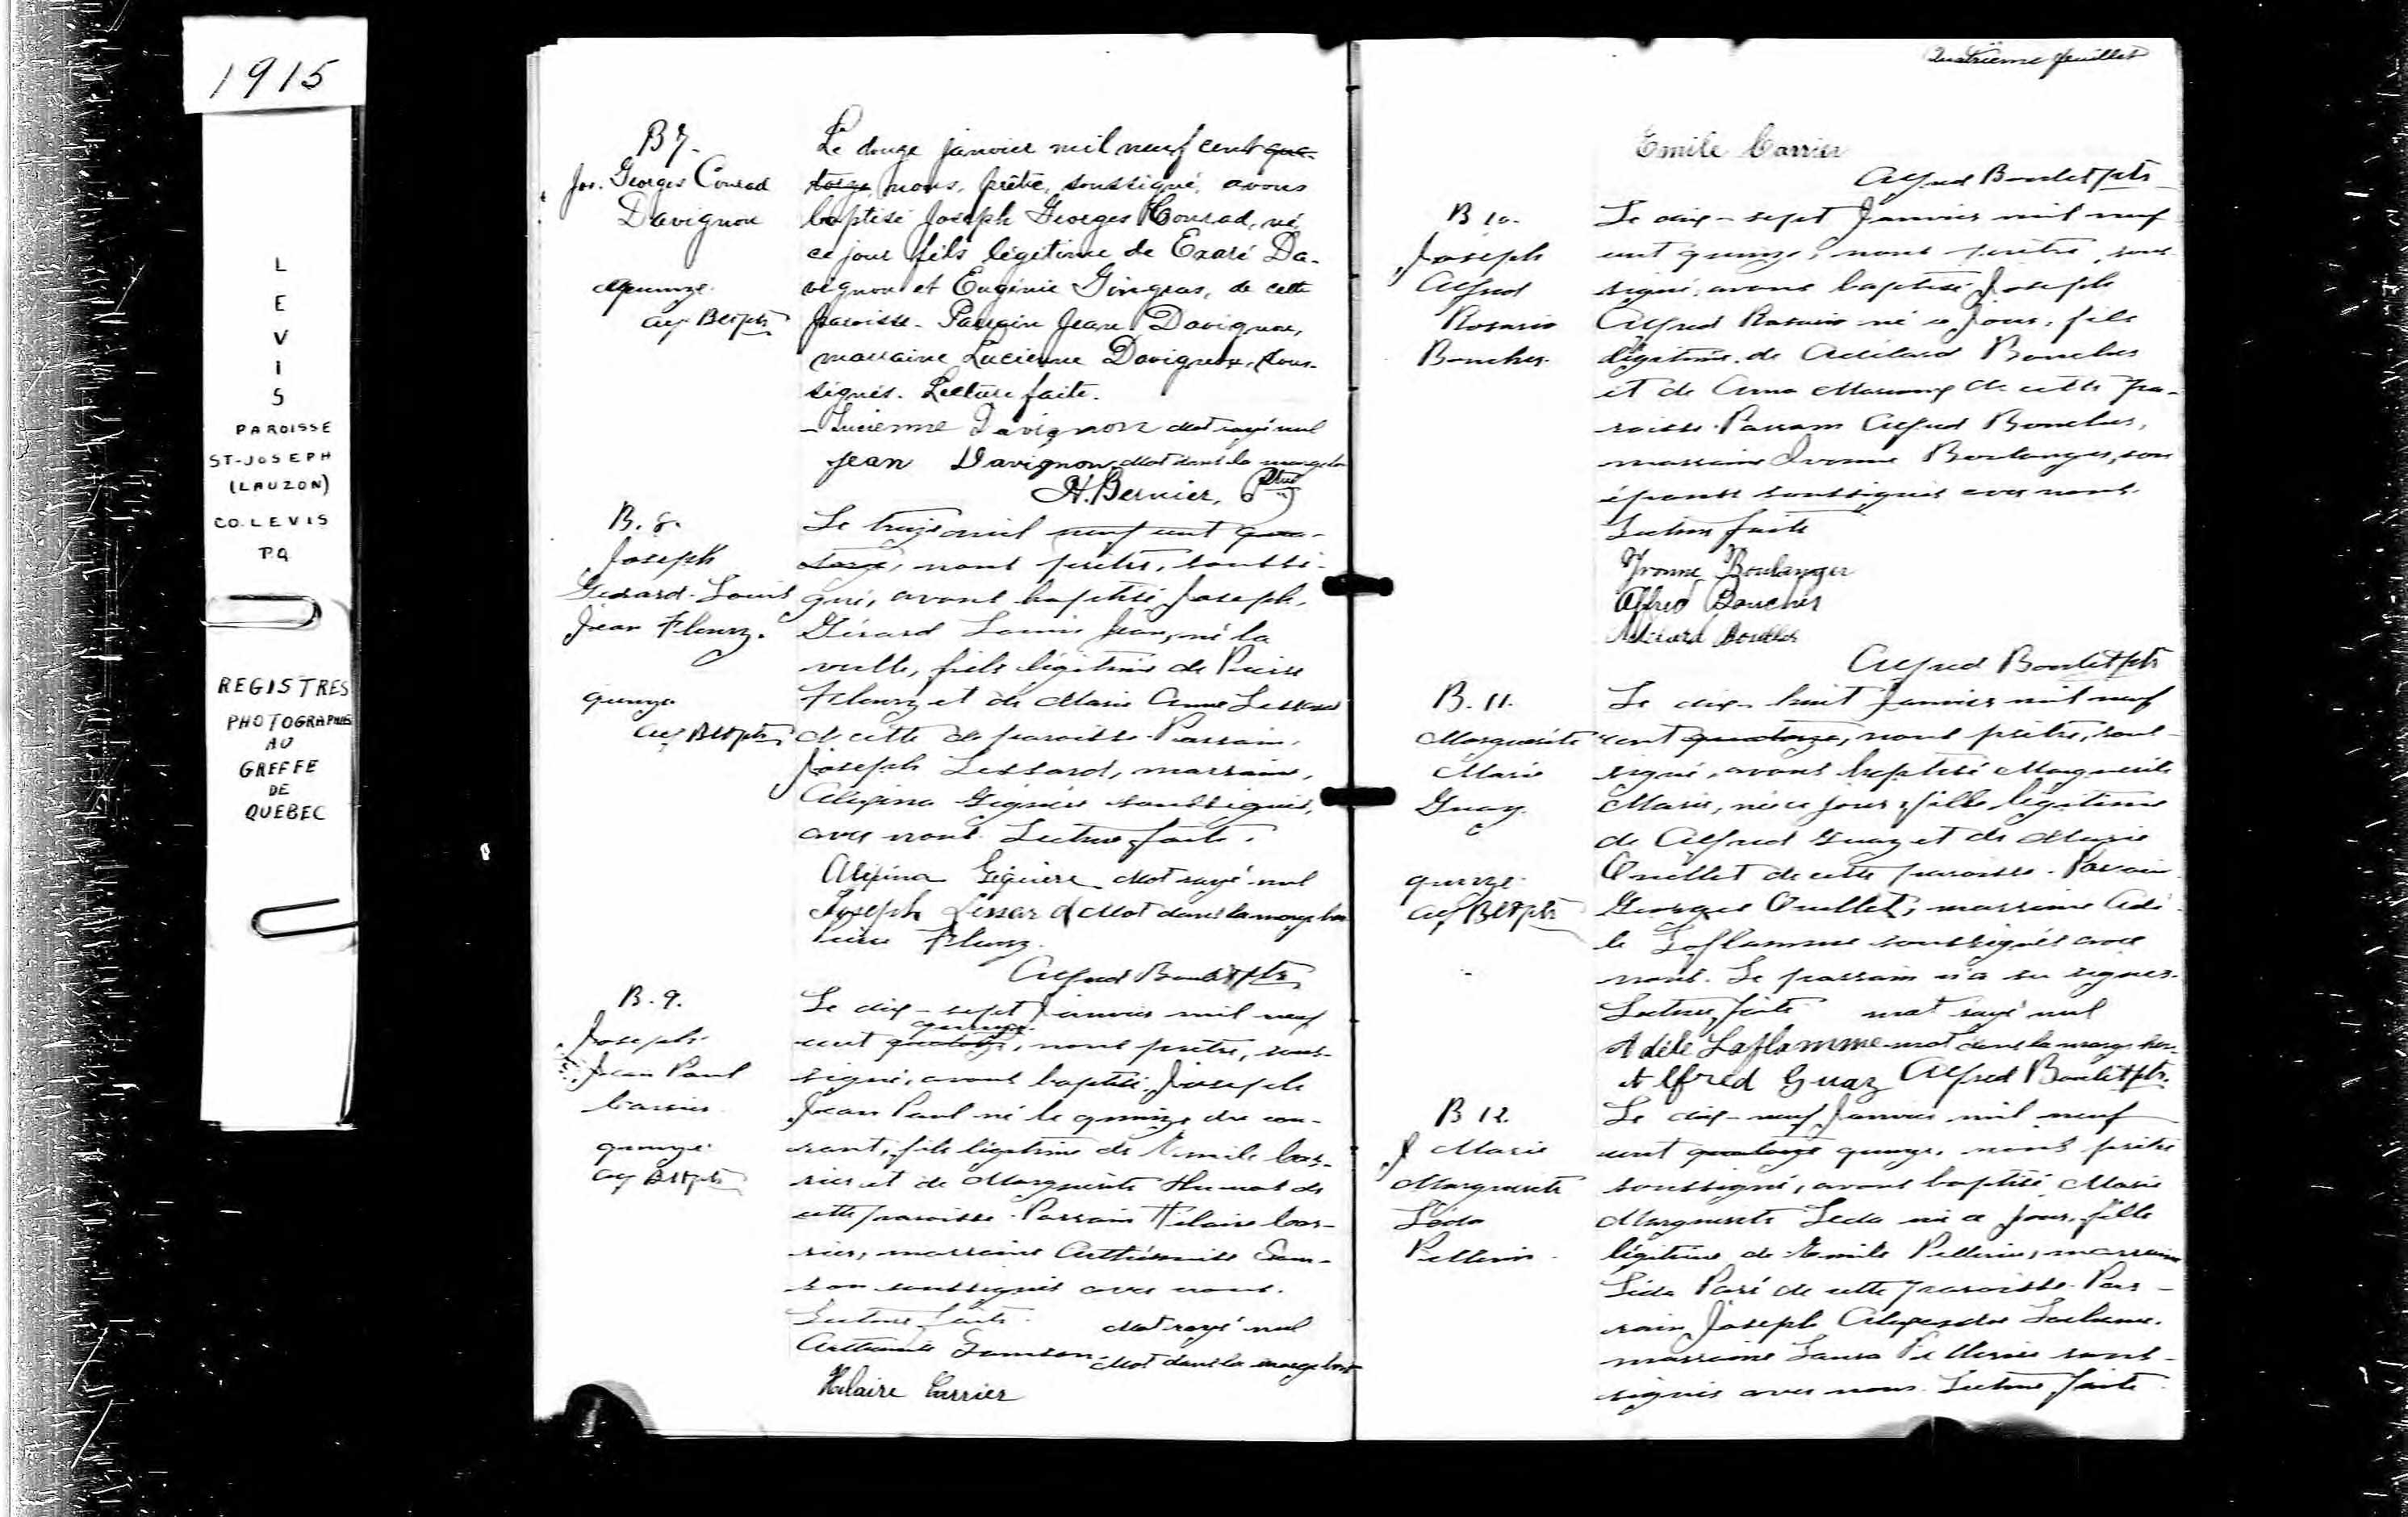 1915
LEVIS
PAROISSE
ST-JOSEPH
(LAUZON)
CO. LEVIS
P.Q
REGISTRES
PHOTOGRAPHIÉS
AU
GREFFE
DE
QUEBEC
B 7.
Jos. Georges Conrad
Davignon
quinze
Alf Blt ptr
Le douze janvier mil neuf cent qua-
torze, nous, prêtre, soussigné, avons
baptisé Joseph Georges Conrad, né
ce jour fils légitime de Exaré Da-
vignon et Eugénie Gingras, de cette
paroisse. Parrain Jean Davignon,
marraine Lucienne Davignon, sous-
signés. Lecture faite.
Lucienne Davignon Mot rayé nul
Jean Davignon Mot dans la marge bon
H. Bernier, Ptre
B. 8.
Joseph
Gérard-Louis
Jean Fleury.
quinze
Alf Blt ptr
Le treize mil neuf cent qua-
torze, nous prêtre, soussi-
gné, avons baptisé Joseph,
Gérard Louis Jean, né la
veille, fils légitime de Pierre
Fleury et de Marie Anne Lessard
de cette de paroisse. Parrain,
Joseph Lessard, marraine,
Alexina Giguère soussignés,
avec nous. Lecture faite.
Alexina Giguère Mot rayé nul
Joseph Lessard Mot dans la marge bon
Pierre Fleury.
Alfred Boulet ptr
B. 9.
Joseph
Jean Paul
Carrier
quinze
Alf Blt ptr
Le dix-sept Janvier mil neuf
quinze
cent quatorze, nous prêtre, sous-
signé, avons baptisé Joseph
Jean Paul né le quinze du cou-
rant, fils légitime de Emile Car-
rier et de Marguerite de
cette paroisse. Parrain Hilaire Car-
rier, marraine Arthémise Sam-
son soussignés avec nous.
Lecture faite. Mot rayé nul
Arthémise Samson. Mot dans la marge bon
Hilaire Carrier
Quatrième feuillet
Emile Carrier
Alfred Boulet ptr
B 10.
Joseph
Alfred
Rosario
Boucher.
Le dix-sept Janvier mil neuf
cent quinze, nous prêtre, sous-
signé, avons baptisé Joseph
Alfred Rosario né ce jour, fils
légitime de Adélard Boucher
et de Anna de cette pa-
roisse. Parrain Alfred Boucher,
marraine Yvonne Boulanger, son
épouse soussignés avec nous.
Lecture faite
Yvonne Boulanger
Alfred Boucher
Adélard Boucher
Alfred Boulet ptr
B. 11.
Marguerite
Marie
Guay
quinze
Alf Blt ptr
Le dix-huit Janvier mil neuf
cent quatorze, nous prêtre, sous-
signé, avons baptisé Marguerite
Marie, née ce jour, fille légitime
de Alfred Guay et de Marie
Ouellet de cette paroisse. Parrain
Georges Ouellet, marraine Adè-
le Laflamme soussignés avec
nous. Le parrain n'a su signer.
Lecture faite mot rayé nul
Adèle Laflamme mot dans la marge bon
Alfred Guay Alfred Boulet ptr.
B 12.
Marie
Marguerite
Léda
Pellerin
Le dix-neuf Janvier mil neuf
cent quatorze quinze, nous prêtre
soussigné, avons baptisé Marie
Marguerite Leda né ce jour, fille
légitime de Emile Pellerin, marraine
Léda Paré de cette paroisse. Par-
rain Joseph Alexandre
marraine Laura Pellerin sous-
signés avec nous. Lecture faite